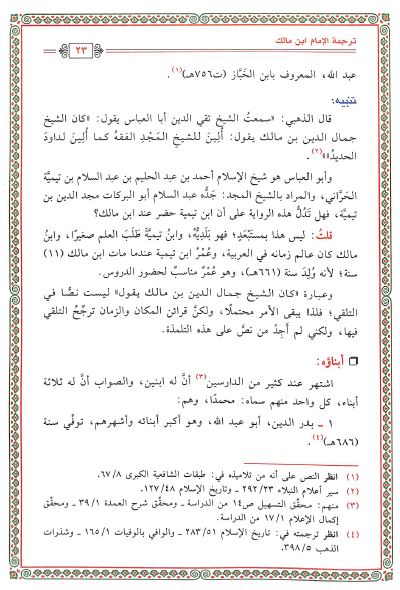 ترجمة الإمام ابن مالك
٢٣
عبد الله، المعروف بابن الخَبَّاز (ت٧٥٦هـ)(١).
تنبيه:
قال الذهبي: «سمعتُ الشيخ تقي الدين أبا العباس يقول: «كان الشيخ
جمال الدين بن مالك يقول: أُلِينَ للشيخ المَجْدِ الفقهُ كما أُلِينَ لداودَ
الحديدُ»»(٢).
وأبو العباس هو شيخ الإسلام أحمد بن عبد الحليم بن عبد السلام بن تيميَّة
الحَرَّاني، والمراد بالشيخ المجد: جَدُّه عبد السلام أبو البركات مجد الدين بن
تيميَّة، فهل تَدُلُّ هذه الرواية على أن ابن تيمية حضر عند ابن مالك؟
قلتُ: ليس هذا بمستَبْعَدٍ؛ فهو بَلَدِيُّه، وابنُ تيميَّةَ طَلَبَ العلم صغيرًا، وابنُ
مالك كان عالم زمانه في العربية، وعُمْرُ ابن تيمية عندما مات ابن مالك (١١)
سنة؛ لأنه وُلِدَ سنة (٦٦١هـ)، وهو عُمْرٌ مناسبٌ لحضور الدروس.
وعبارة «كان الشيخ جمال الدين بن مالك يقول» ليست نصًّا في
التلقي؛ فلذا يبقى الأمر محتملًا، ولكنَّ قرائن المكان والزمان ترجِّحُ التلقي
فيها، ولكني لم أَجِدْ من نصَّ على هذه التلمذة.
❒ أبناؤه:
اشتهر عند كثير من الدارسين(٣) أنَّ له ابنين، والصواب أنَّ له ثلاثة
أبناء، كل واحد منهم سماه: محمدًا، وهم:
١ ـ بدر الدين، أبو عبد الله، وهو أكبر أبنائه وأشهرهم، توفي سنة
(٦٨٦هـ)(٤).
(١) انظر النص على أنه من تلاميذه في: طبقات الشافعية الكبرى ٦٧/٨.
(٢) سير أعلام النبلاء ٢٩٢/٢٣ ـ وتاريخ الإسلام ١٢٧/٤٨.
(٣) منهم: محقِّق التسهيل ص١٤ من الدراسة ـ ومحقِّق شرح العمدة ٣٩/١ ـ ومحقِّق
إكمال الإعلام ١٧/١ من الدراسة.
(٤) انظر ترجمته في: تاريخ الإسلام ٢٨٣/٥١ ـ والوافي بالوفيات ١٦٥/١ ـ وشذرات
الذهب ٣٩٨/٥.